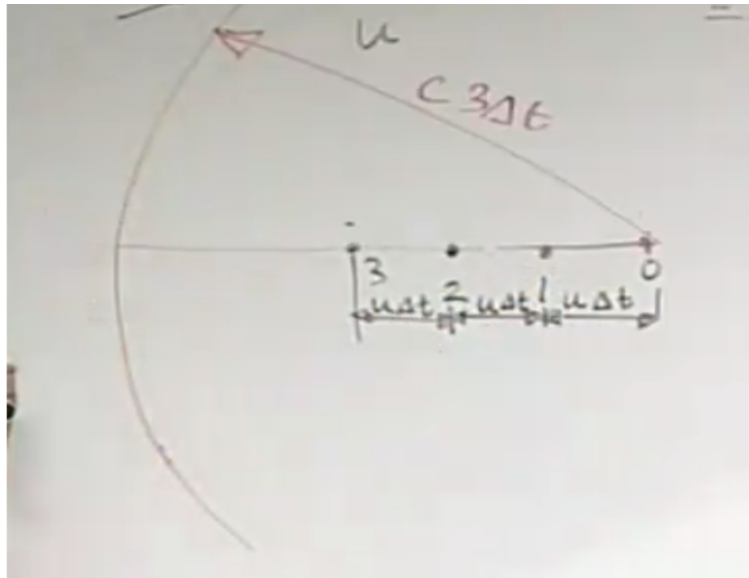 u
C 3Δt
3 2 1 0
uΔt uΔt uΔt